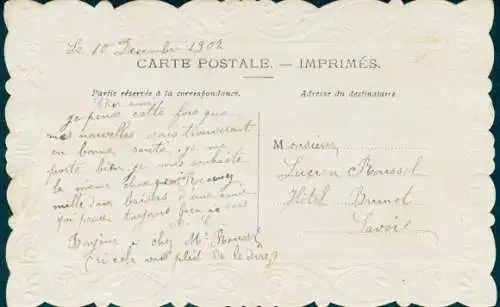 Le 10 Decembre 1902
CARTE POSTALE. — IMPRIMÉS.
Partie réservée à la correspondance.
Adresse du destinataire
Cher ami
je pense cette fois que
mes nouvelles vous trouveront
en bonne santé je me
porte bien je vous souhaite
la meme chose
mille doux baisers d'une amie
qui pense toujours bien à vous
Bonjour a chez Mr Roussel
si cela vous plait de le dire
Monsieur
Lucien Roussel
Hôtel Brunet
Savoie